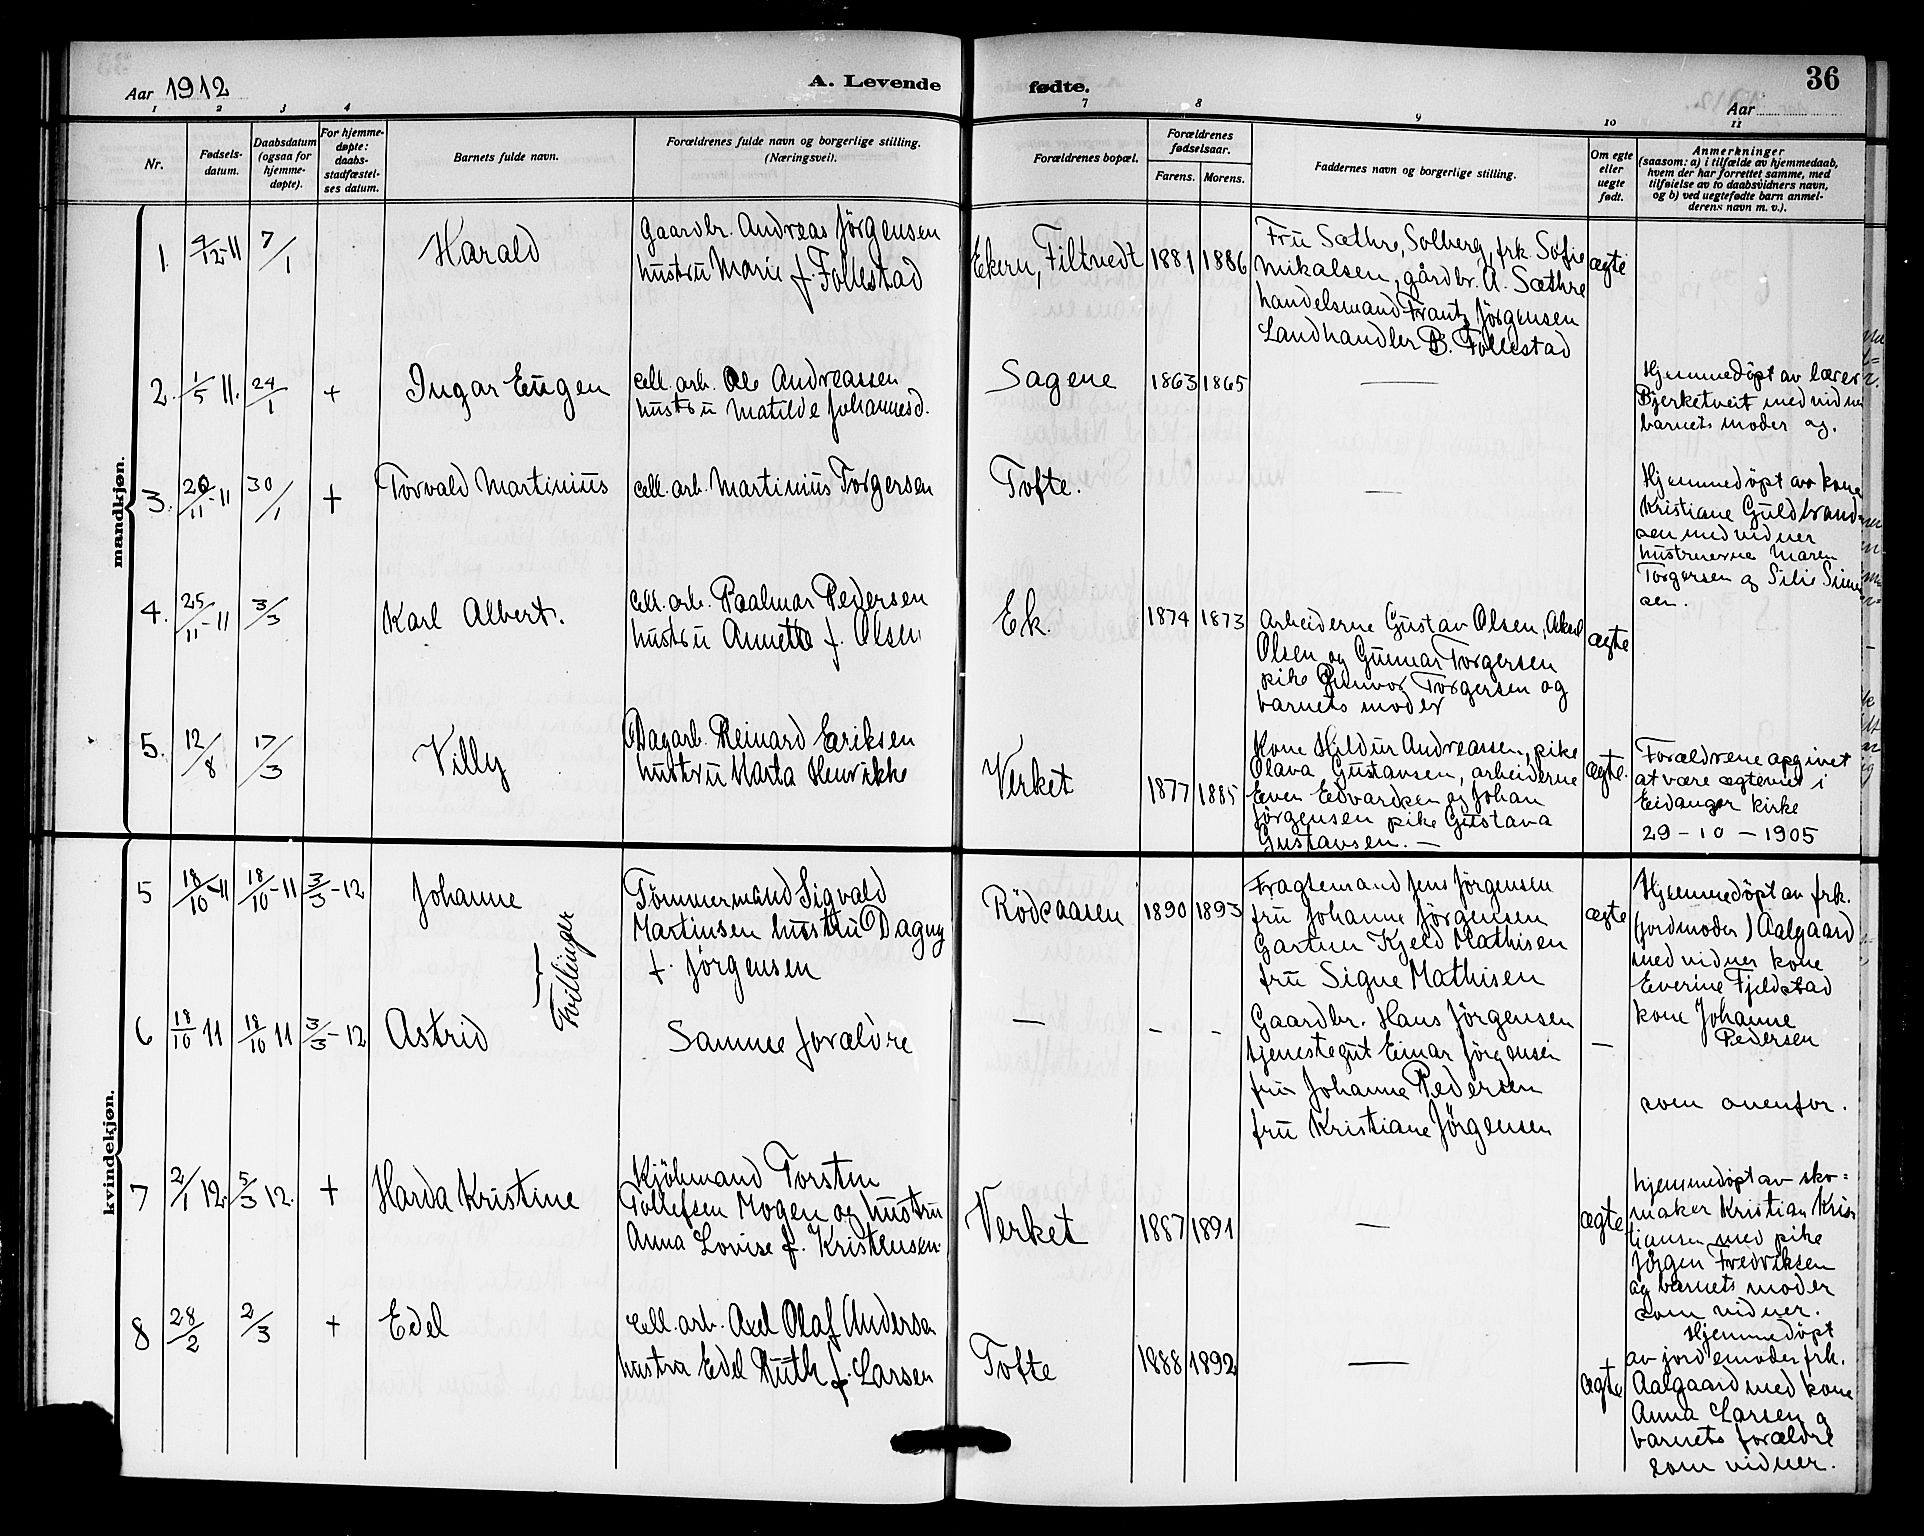 Aar 1912
A. Levende
fødte.
36
Aar
1 2 3 4 7 8 9 10 11
Nr.
Fødsels-
datum.
Daabsdatum
(ogsaa for
hjemme-
døpte).
For hjemme-
døpte:
daabs-
stadfæstel-
ses datum.
Barnets fulde navn.
Forældrenes fulde navn og borgerlige stilling.
(Næringsvei).
Forældrenes bopæl.
Forældrenes
fødselsaar.
Farens. Morens.
Faddernes navn og borgerlige stilling.
Om egte
eller
uegte
født.
Anmerkninger
(saasom: a) i tilfælde av hjemmedaab,
hvem der har forrettet samme, med
tilføielse av to daabsvidners navn,
og b) ved uegtefødte barn anmel-
derens navn m. v.).
mandkjøn.
1. 4/12-11 7/1
Harald
Gaardbr. Andreas Jörgensen
hustru Marie f. Follestad
Ekern, Filtvedt
1881 1886
Fru Sæthre, Solberg, frk. Sofie
Mikalsen, gårdbr. A. Sæthre
handelsmand Frantz Jörgensen
Landhandler B. Follestad
ægte
2. 1/5 11. 24/1 +
Ingar Eugen
cell. arb. Ole Andreassen
hustru Matilde Johannesd.
Sagene
1863 1865
—
Hjemmedöpt av lærer
Bjerketveit med vidner
barnets moder og.
3. 20/11-11 30/1 +
Torvald Martinius
cell. arb. Martinius Torgersen
Tofte.
—
Hjemmedöpt av kone
Kristiane Guldbrand-
sen med vidner
hustruerne Maren
Torgersen og Silie Simen
sen.
4. 25/11-11 3/3
Karl Albert.
cell. arb. Paalmar Pedersen
hustru Annette f. Olsen
Ek.
1874 1873
Arbeiderne Gustav Olsen, Aksel
Olsen og Gunnar Torgersen
pike Gunvor Torgersen og
barnets moder
ægte
5. 12/8 17/3
Villy
Dagarb. Reinard Eriksen
hustru Marta Henrikke
Verket
1877 1885
Kone Hildur Andreassen, pike
Olava Gustavsen, arbeiderne
Even Edvardsen og Johan
Jörgensen pike Gustava
Gustavsen. —
ægte.
Forældrene opgivet
at være ægteviet i
Eidanger kirke
29 - 10 - 1905
kvindekjøn.
5 18/10-11 18/10-11 3/3-12
Johanne
Tvillinger
Tömmermand Sigvald
Martinsen hustru Dagny
f. Jörgensen
Rödsaasen
1890 1893
Fragtemand Jens Jörgensen
fru Johanne Jörgensen
Gartner Kjeld Mathisen
fru Signe Mathisen
ægte
Hjemmedöpt av frk.
(jordmoder) Aalgaard
med vidner kone
Everine Fjeldstad
kone Johanne
Pedersen
6 18/10 11 18/10 11 3/3-12
Astrid
Samme forældre
— — -
Gaardbr. Hans Jörgensen
tjenestegut Einar Jörgensen
fru Johanne Pedersen
fru Kristiane Jörgensen
—
som ovenfor.
7 2/1 12. 5/3 12. +
Harda Kristine
Kjöbmand Torsten
Tollefsen Mogen og hustru
Anna Lovise f. Kristensen.
Verket
1887 1891
—
ægte
hjemmedöpt av sko-
maker Kristian Kris
tiansen med pike
Jörgen Fredriksen
og barnets moder
som vidner.
8 28/2 2/3 +
Edel
cell. arb. Axel Olaf Andersen
hustru Edel Ruth f. Larsen
Tofte
1888 1892
—
ægte
Hjemmedöpt
av jordemoder frk.
Aalgaard med kone
Anna Larsen og
barnets forældre
som vidner.